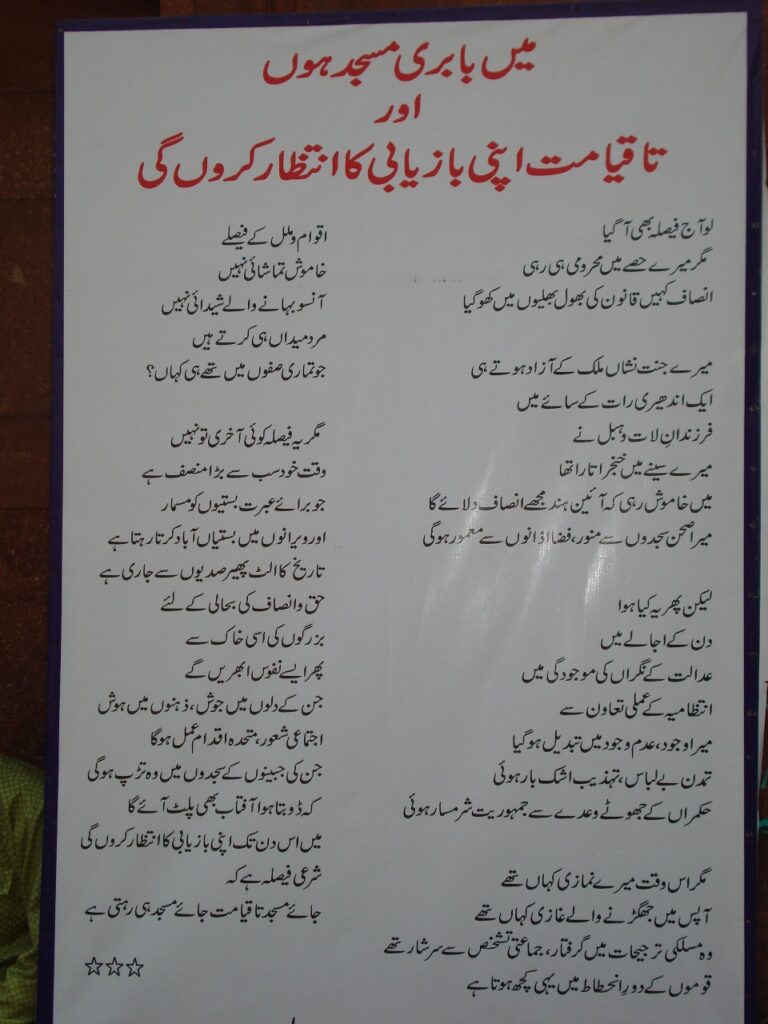 میں بابری مسجد ہوں
اور
تا قیامت اپنی بازیابی کا انتظار کروں گی
لو آج فیصلہ بھی آ گیا
مگر میرے حصے میں محرومی ہی رہی
انصاف کہیں قانون کی بھول بھلیوں میں کھو گیا
میرے جنت نشاں ملک کے آزاد ہوتے ہی
ایک اندھیری رات کے سائے میں
فرزندانِ لات و ہبل نے
میرے سینے میں خنجر اتارا تھا
میں خاموش رہی کہ آئین ہند مجھے انصاف دلائے گا
میرا صحن سجدوں سے منور، فضا اذانوں سے معمور ہوگی
لیکن پھر یہ کیا ہوا
دن کے اجالے میں
عدالت کے نگراں کی موجودگی میں
انتظامیہ کے عملی تعاون سے
میرا وجود، عدم وجود میں تبدیل ہو گیا
تمدن بے لباس، تہذیب اشک بار ہوئی
حکمراں کے جھوٹے وعدے سے جمہوریت شرمسار ہوئی
مگر اس وقت میرے نمازی کہاں تھے
آپس میں جھگڑنے والے غازی کہاں تھے
وہ مسلکی ترجیحات میں گرفتار، جماعتی تشخص سے سرشار تھے
قوموں کے دورِ انحطاط میں یہی کچھ ہوتا ہے
اقوام و ملل کے فیصلے
خاموش تماشائی نہیں
آنسو بہانے والے شیدائی نہیں
مرد میداں ہی کرتے ہیں
جو تماری صفوں میں تھے ہی کہاں؟
مگر یہ فیصلہ کوئی آخری تو نہیں
وقت خود سب سے بڑا منصف ہے
جو برائے عبرت بستیوں کو مسمار
اور ویرانوں میں بستیاں آباد کرتا رہتا ہے
تاریخ کا الٹ پھیر صدیوں سے جاری ہے
حق و انصاف کی بحالی کے لئے
بزرگوں کی اسی خاک سے
پھر ایسے نفوس ابھریں گے
جن کے دلوں میں جوش، ذہنوں میں ہوش
اجتماعی شعور، متحدہ اقدام عمل ہوگا
جن کی جبینوں کے سجدوں میں وہ تڑپ ہوگی
کہ ڈوبتا ہوا آفتاب بھی پلٹ آئے گا
میں اس دن تک اپنی بازیابی کا انتظار کروں گی
شرعی فیصلہ ہے کہ
جائے مسجد تا قیامت جائے مسجد ہی رہتی ہے
☆☆☆